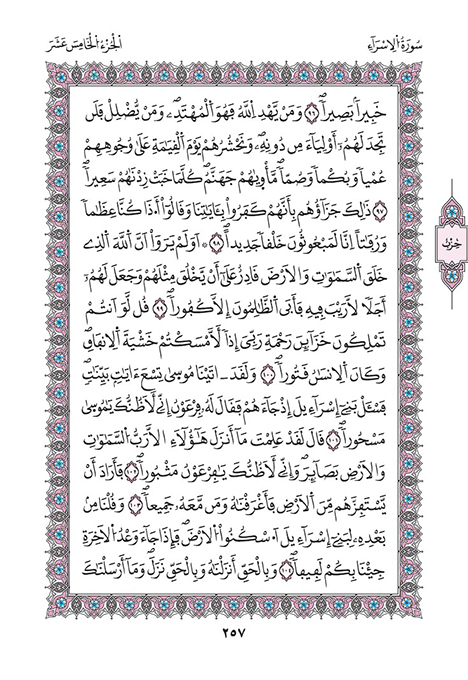 سُورَةُ اُلِاسْرَآءِ
اَلْجُزْءُ اُلْخَامِسَ عَشَرَ
خَبِيراَۢ بَصِيراٗۖ ٩٦ وَمَنْ يَّهْدِ اِ۬للَّهُ فَهُوَ اَ۬لْمُهْتَدِۦۖ وَمَنْ يُّضْلِلْ فَلَن
تَجِدَ لَهُمُۥٓ أَوْلِيَآءَ مِن دُونِهِۦۖ وَنَحْشُرُهُمْ يَوْمَ اَ۬لْقِيَٰمَةِ عَلَىٰ وُجُوهِهِمْ
عُمْياٗ وَبُكْماٗ وَصُمّاٗۖ مَّأْوِيٰهُمْ جَهَنَّمُۖ كُلَّمَا خَبَتْ زِدْنَٰهُمْ سَعِيراٗۖ
٩٧ ذَٰلِكَ جَزَآؤُهُم بِأَنَّهُمْ كَفَرُواْ بِـَٔايَٰتِنَا وَقَالُوٓاْ أَ.ذَا كُنَّا عِظَٰماٗ
وَرُفَٰتاً اِنَّا لَمَبْعُوثُونَ خَلْقاٗ جَدِيداًۖ ٩٨ ۞ اَوَلَمْ يَرَوَاْ اَنَّ اَ۬للَّهَ اَ۬لذِے
خَلَقَ اَ۬لسَّمَٰوَٰتِ وَالَارْضَ قَادِرٌ عَلَىٰٓ أَنْ يَّخْلُقَ مِثْلَهُمْ وَجَعَلَ لَهُمُۥٓ
أَجَلاٗ لَّا رَيْبَ فِيهِ فَأَبَى اَ۬لظَّٰلِمُونَ إِلَّا كُفُوراٗۖ ٩٩ قُل لَّوَ اَنتُمْ
تَمْلِكُونَ خَزَآئِنَ رَحْمَةِ رَبِّيَ إِذاٗ لَّأَمْسَكْتُمْ خَشْيَةَ اَ۬لِانفَاقِۖ
وَكَانَ اَ۬لِانسَٰنُ قَتُوراٗۖ ١٠٠ وَلَقَدَ اٰتَيْنَا مُوسَىٰ تِسْعَ ءَايَٰتِۢ بَيِّنَٰتٖۖ
فَسْـَٔلْ بَنِےٓ إِسْرَآءِيلَ إِذْ جَآءَهُمْ فَقَالَ لَهُۥ فِرْعَوْنُ إِنِّے لَأَظُنُّكَ يَٰمُوسَىٰ
مَسْحُوراٗۖ ١٠١ قَالَ لَقَدْ عَلِمْتَ مَآ أَنزَلَ هَٰٓؤُلَآءِ اِلَّا رَبُّ اُ۬لسَّمَٰوَٰتِ
وَالَارْضِ بَصَآئِرَۖ وَإِنِّے لَأَظُنُّكَ يَٰفِرْعَوْنُ مَثْبُوراٗۖ ١٠٢ فَأَرَادَ أَنْ
يَّسْتَفِزَّهُم مِّنَ اَ۬لَارْضِ فَأَغْرَقْنَٰهُ وَمَن مَّعَهُۥ جَمِيعاٗۖ ١٠٣ وَقُلْنَا مِنۢ
بَعْدِهِۦ لِبَنِےٓ إِسْرَآءِيلَ اَ۟سْكُنُواْ اُ۬لَارْضَۖ فَإِذَا جَآءَ وَعْدُ اُ۬لَاخِرَةِ
جِئْنَا بِكُمْ لَفِيفاٗۖ ١٠٤ وَبِالْحَقِّ أَنزَلْنَٰهُ وَبِالْحَقِّ نَزَلَۖ وَمَآ أَرْسَلْنَٰكَ
حِزْب
٢٥٧